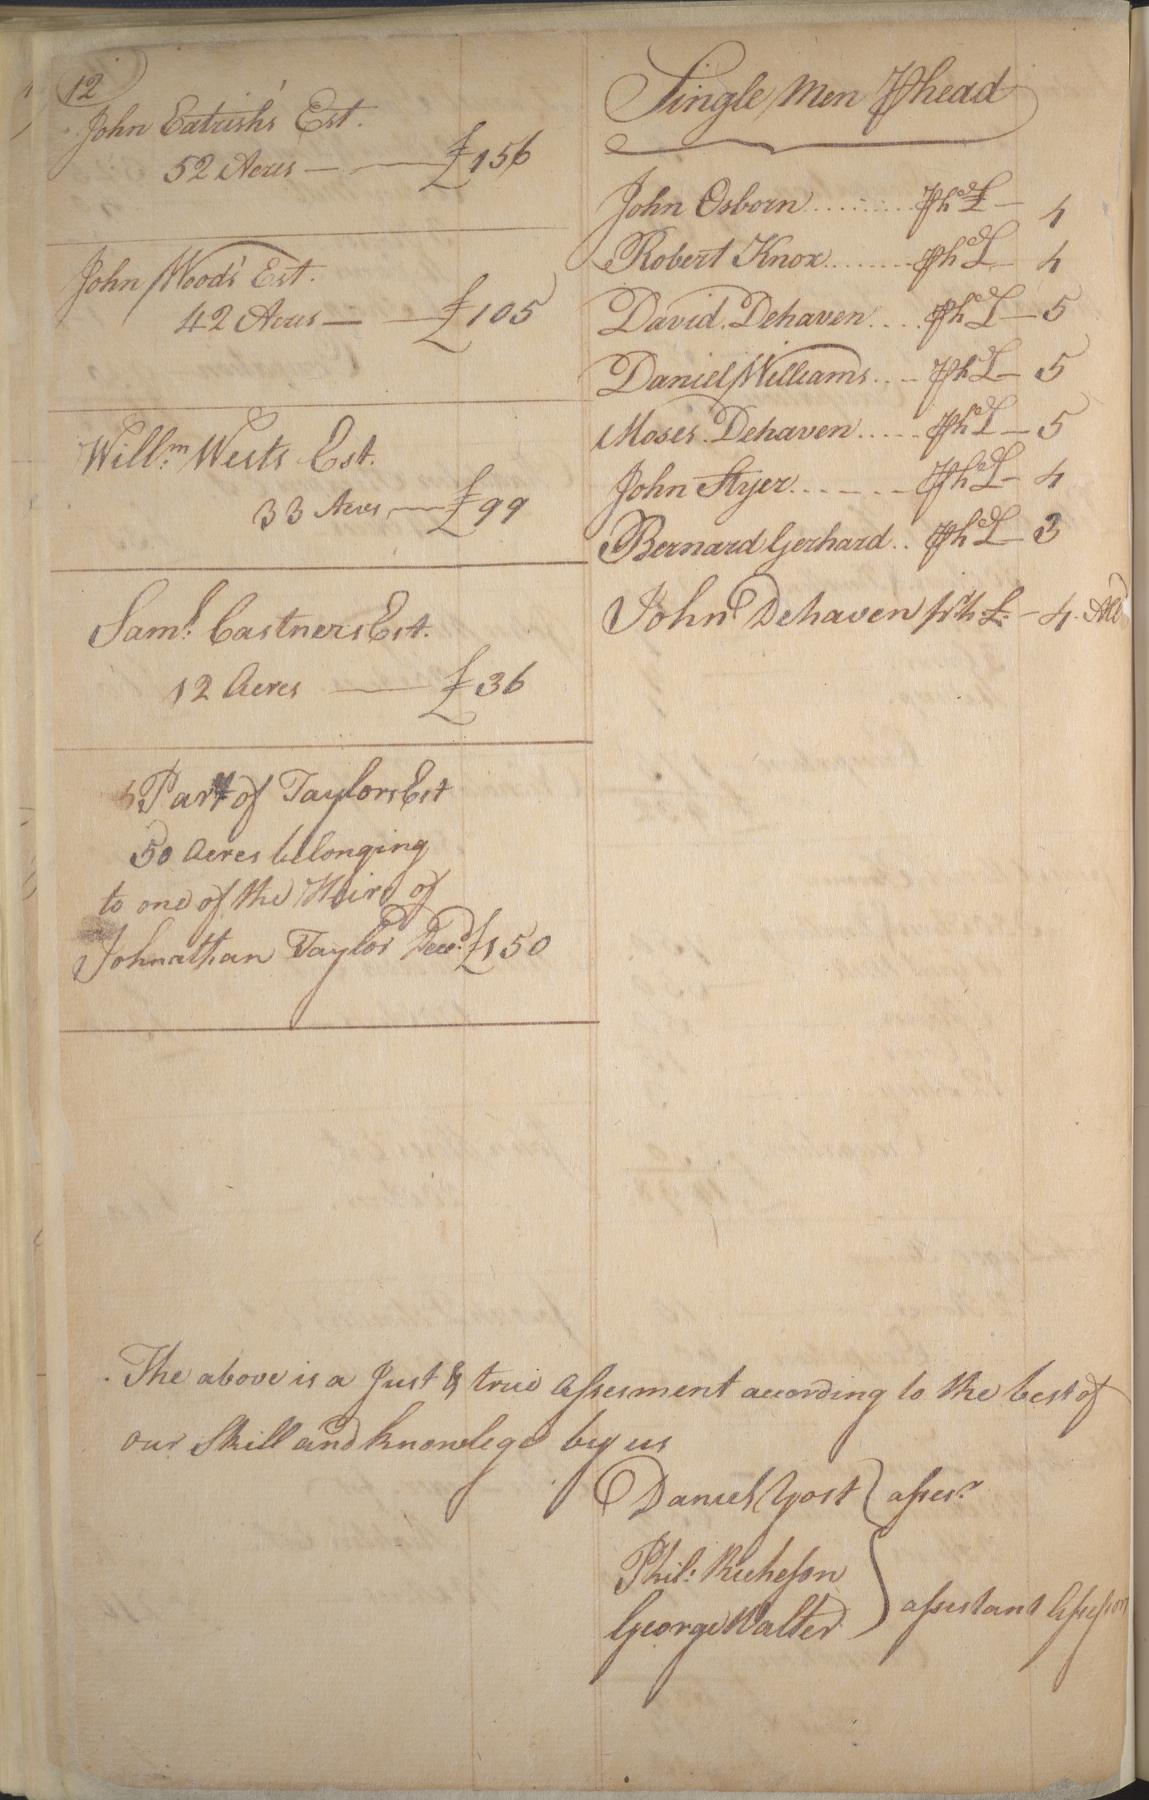 12
John Eatrish's Est.
52 Acres — — £156
John Wood's Est.
42 Acres — — £105
Will.m Wests Est.
33 Acres — £99
Sam.l Castners Est.
12 Acres — £36
Part of Taylors Est
50 Acres belonging
to one of the Heirs of
Johnathan Taylor Dec.d £150
Single Men ⅌ head
John Osborn ......... ⅌ h.d £ — 4
Robert Knox ........ ⅌ h.d £ — 4
David Dehaven .... ⅌ h.d £ — 5
Daniel Williams ... ⅌ h.d £ — 5
Moses Dehaven ..... ⅌ h.d £ — 5
John Styer ....... ⅌ h.d £ — 4
Bernard Gerhard .. ⅌ h.d £ — 3
John Dehaven pr h £ — 4
The above is a Just & true Assesment according to the best of
our Skill and knowlege by us
Daniel Yost } asses.r
Phil: Richeson
George Walter } assestant Assessors